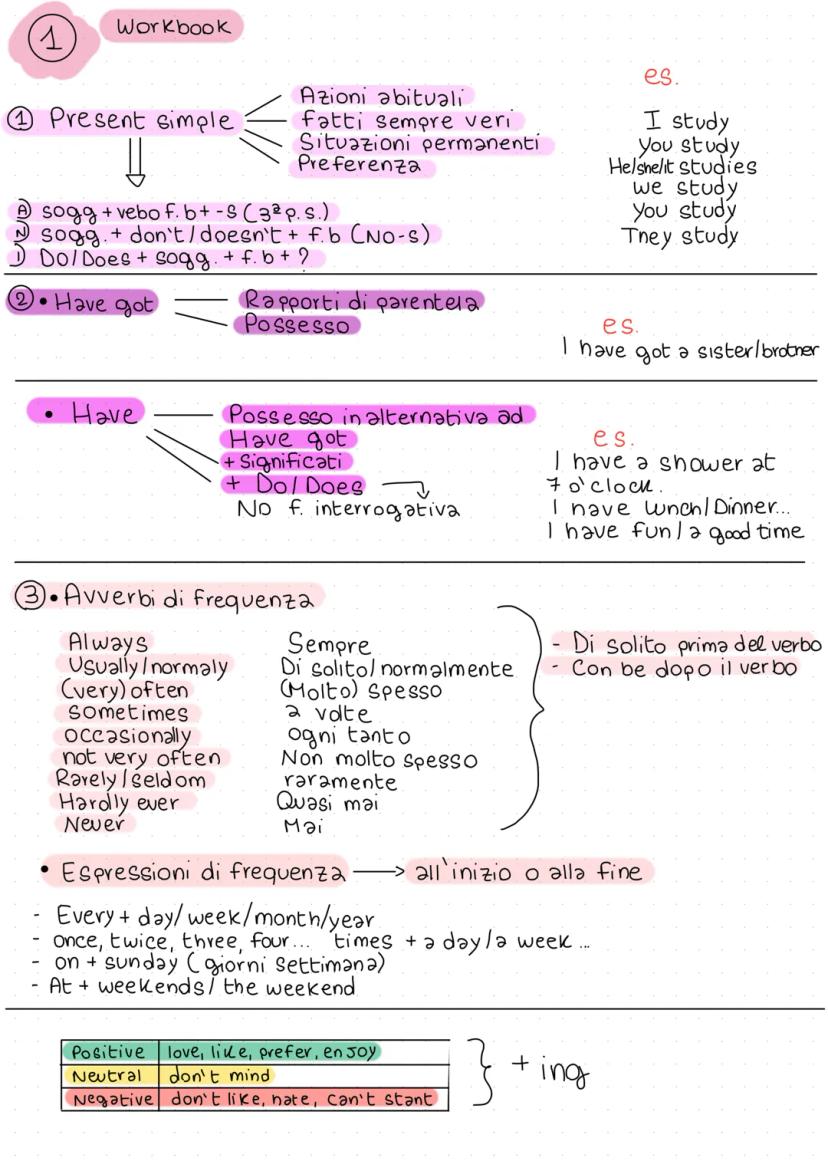 1 Workbook
es.
① Present simple
Azioni abituali
fatti sempre veri
Situazioni permanenti
Preferenza
I study
You study
He/she/it studies
we study
You study
They study
A) sogg + vebo f.b + -s (3ª p.s.)
N) sogg. + don't / doesn't + f.b (NO-s)
I) Do/Does + sogg. + f.b + ?
② • Have got
Rapporti di parentela
Possesso
es.
I have got a sister/brother
• Have
Possesso in alternativa ad
Have got
+ Significati
+ Do/Does
No f. interrogativa
es.
I have a shower at
7 o'clock.
I have lunch/Dinner...
I have fun/a good time
③ • Avverbi di frequenza
Always Sempre
Usually/normaly Di solito/normalmente
(very) often (Molto) spesso
sometimes a volte
occasionally ogni tanto
not very often Non molto spesso
Rarely/seldom raramente
Hardly ever Quasi mai
Never Mai
- Di solito prima del verbo
- Con be dopo il verbo
• Espressioni di frequenza → all'inizio o alla fine
- Every + day/week/month/year
- once, twice, three, four... times + a day/a week...
- on + sunday (giorni settimana)
- At + weekends/ the weekend
Positive love, like, prefer, enjoy
Neutral don't mind
Negative don't like, hate, can't stant
+ ing